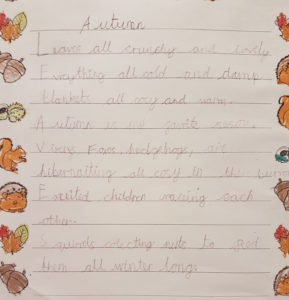 Autumn
Leaves all crunchy and lovely
Everything all cold and damp
blankets all cosy and warm.
Autumn is my favrite season.
Foxs, hedgehogs, are
hibernatting all cosy in their
Excited children racing each
other.
Squirrels colecting nuts to feed
them all winter long.